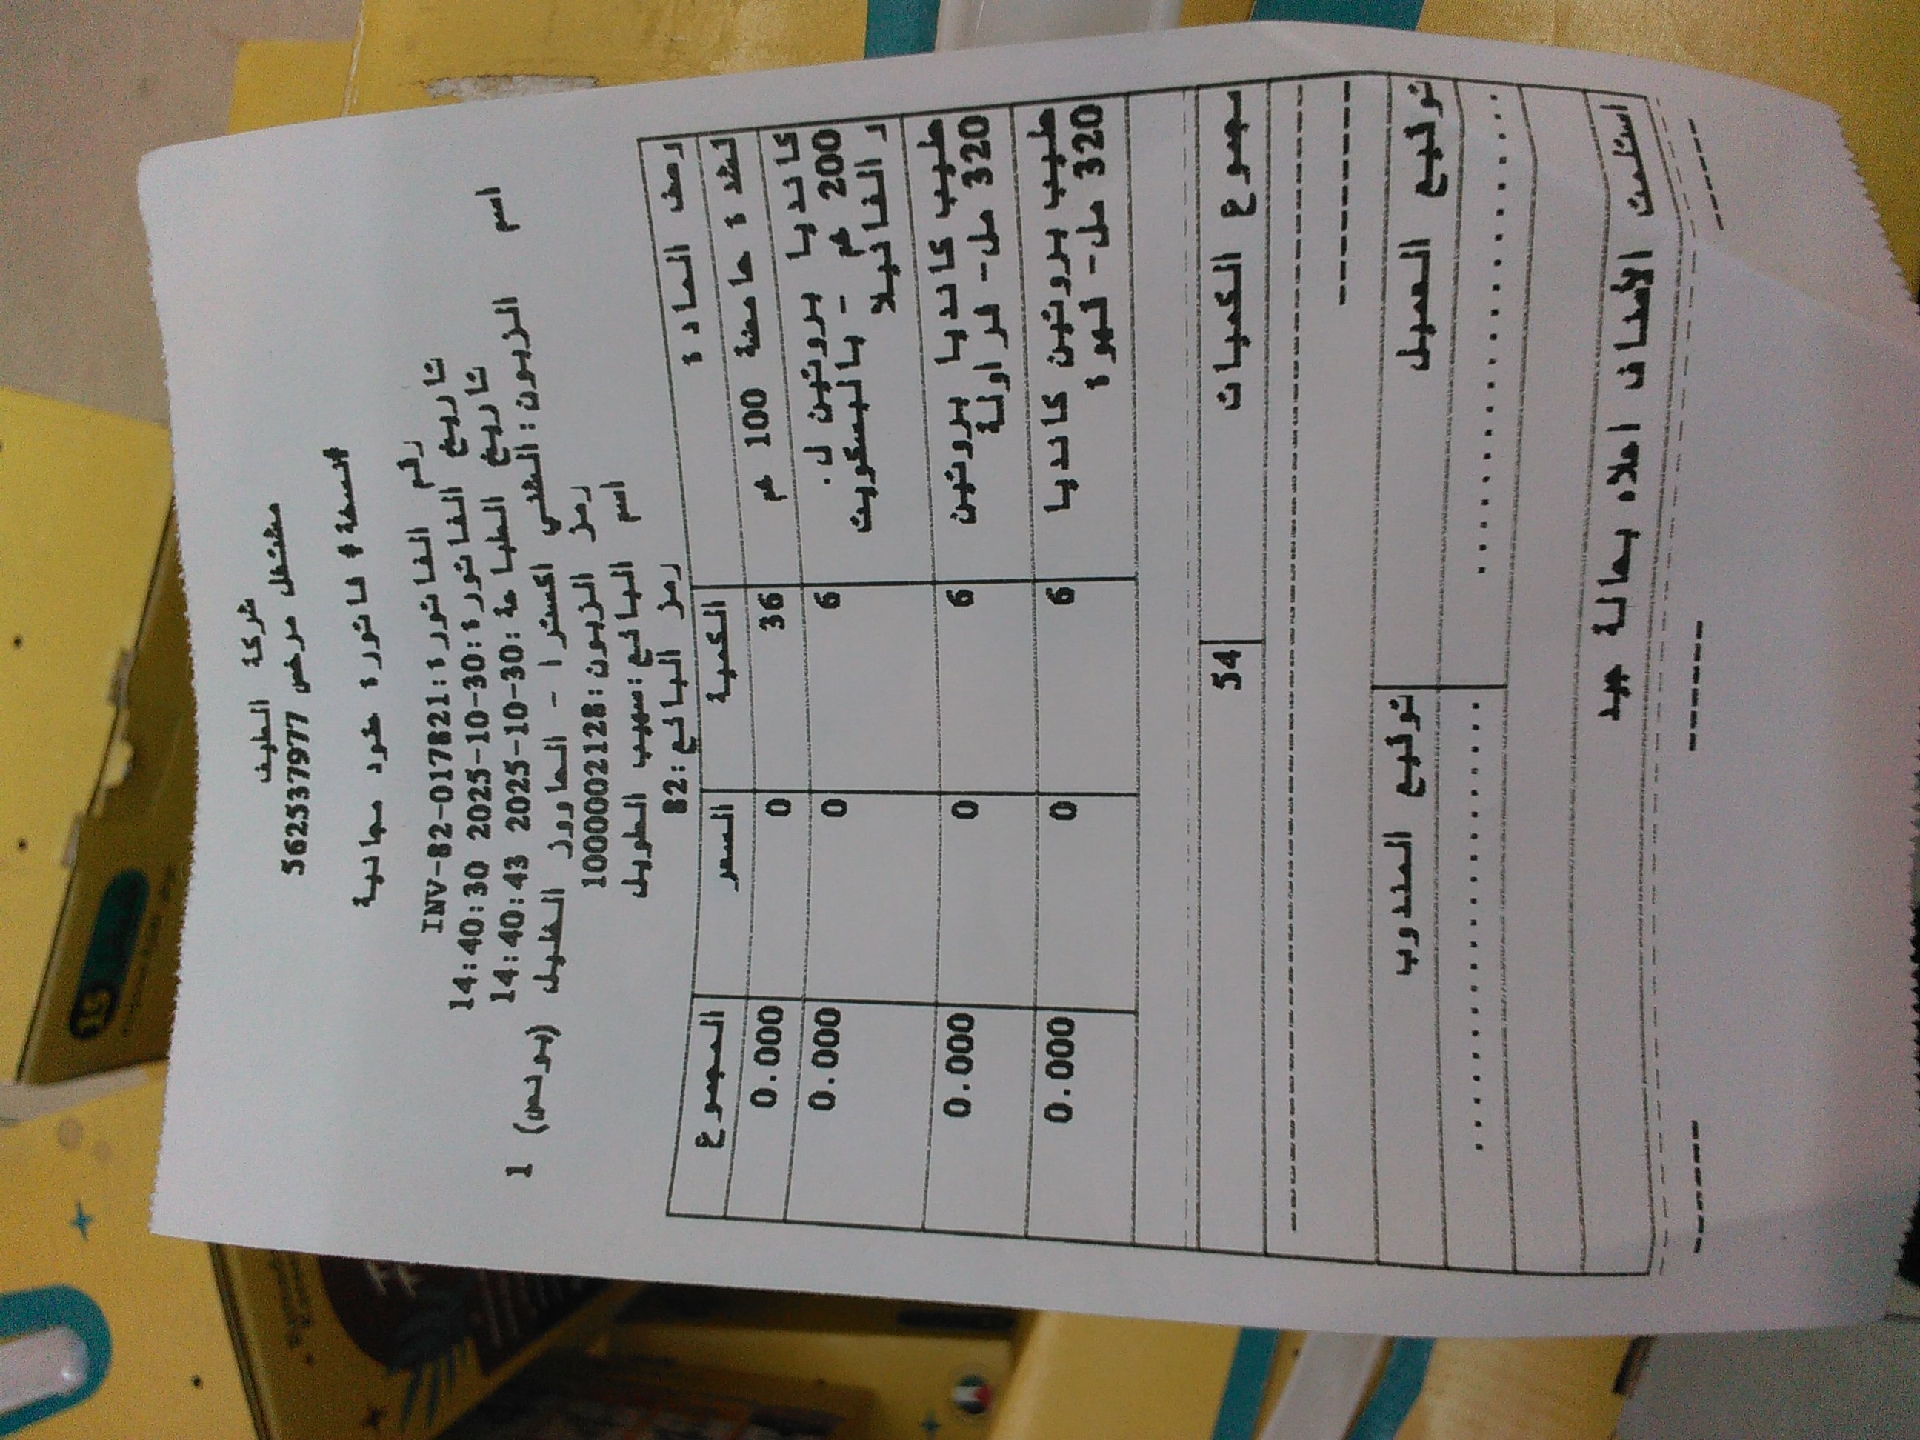 شركة الطيف
مشتغل مرخص 562537977
#نسخة# فاتورة طرود مجانية
رقم الفاتورة:INV-82-017821
تاريخ الفاتورة:2025-10-30 14:40:30
تاريخ الطباعة:2025-10-30 14:40:43
اسم الزبون:الشني اكسترا - الماوورد الخليل (بونص) 1
رمز الزبون:1000002128
اسم البائع:صهيب الطويل
رمز البائع:82
وصف المادة الكمية السعر المجموع
قشدة حامضة 100 غم 36 0 0.000
كانديا بروتين ل. 200 غم - بالبسكويت و الفانيلا 6 0 0.000
حليب كانديا بروتين 320 مل- فراولة 6 0 0.000
حليب بروتين كانديا 320 مل- قهوة 6 0 0.000
مجموع الكميات 54
توقيع العميل توقيع المندوب
استلمت الأصناف اعلاه بحالة جيد